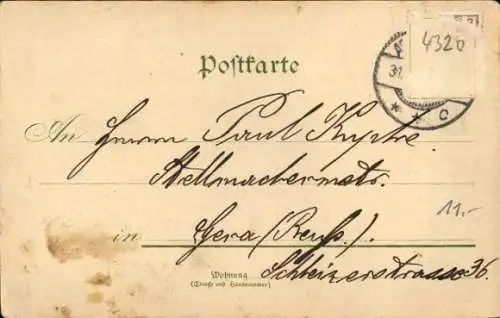 4320
31.
Postkarte
* * c
An Herrn Paul Kupke.
Stellmachermstr.
11.-
in Gera (Reuß).
Wohnung
(Straße und Hausnummer)
Schleizerstrasse 36.